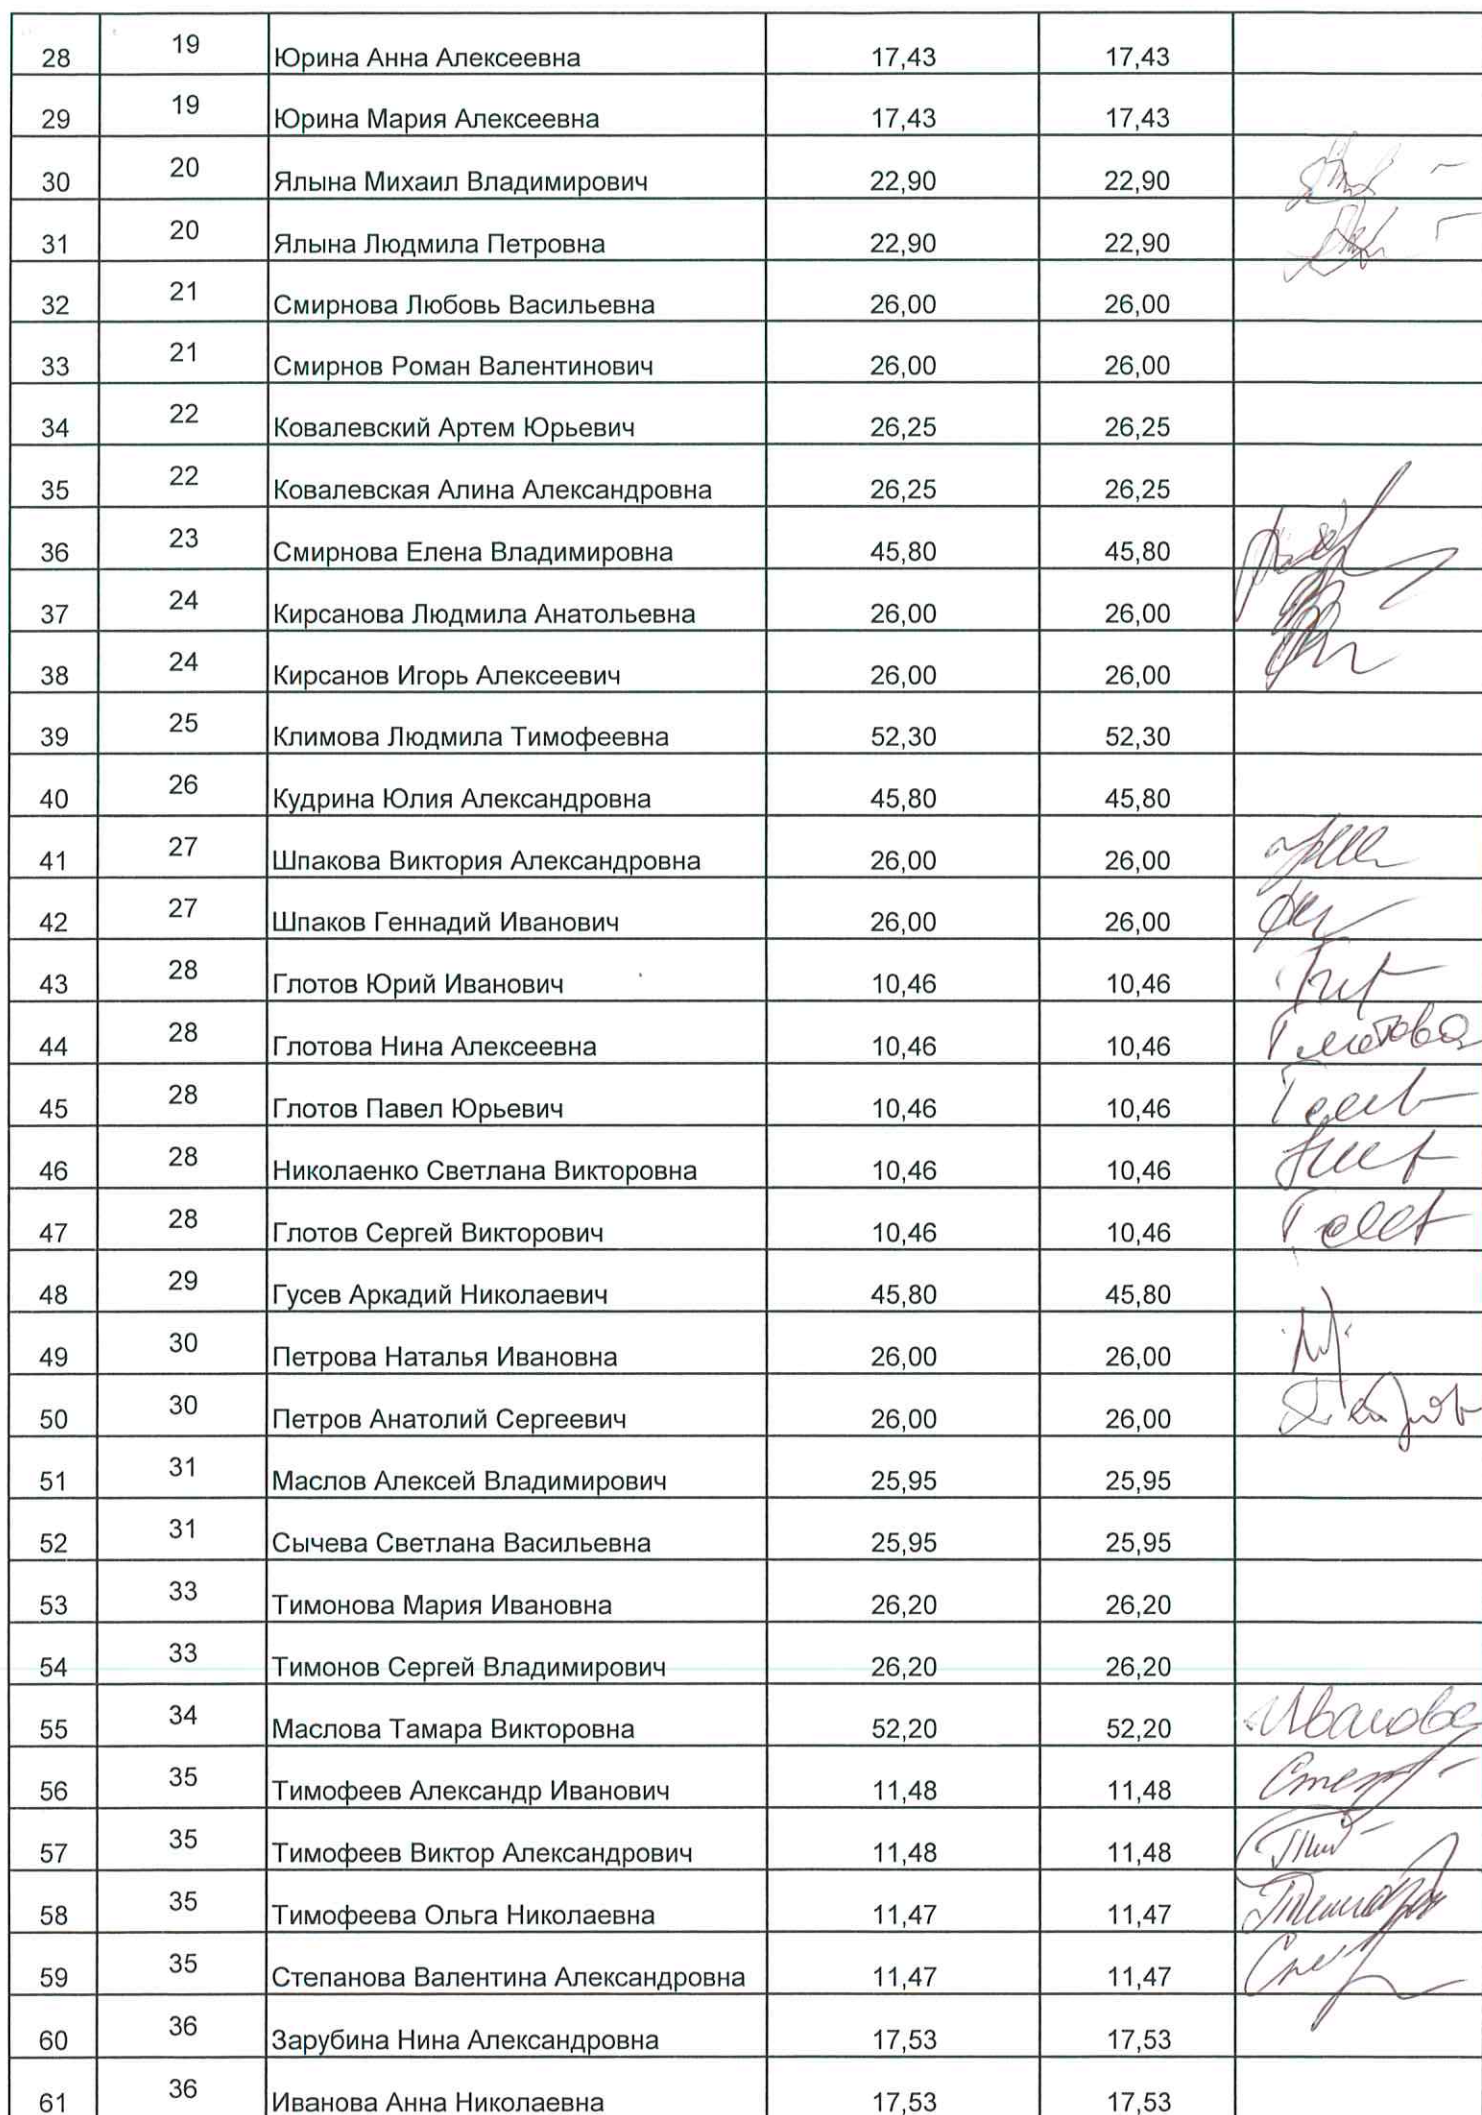 28 19 Юрина Анна Алексеевна 17,43 17,43
29 19 Юрина Мария Алексеевна 17,43 17,43
30 20 Ялына Михаил Владимирович 22,90 22,90
31 20 Ялына Людмила Петровна 22,90 22,90
32 21 Смирнова Любовь Васильевна 26,00 26,00
33 21 Смирнов Роман Валентинович 26,00 26,00
34 22 Ковалевский Артем Юрьевич 26,25 26,25
35 22 Ковалевская Алина Александровна 26,25 26,25
36 23 Смирнова Елена Владимировна 45,80 45,80
37 24 Кирсанова Людмила Анатольевна 26,00 26,00
38 24 Кирсанов Игорь Алексеевич 26,00 26,00
39 25 Климова Людмила Тимофеевна 52,30 52,30
40 26 Кудрина Юлия Александровна 45,80 45,80
41 27 Шпакова Виктория Александровна 26,00 26,00
42 27 Шпаков Геннадий Иванович 26,00 26,00
43 28 Глотов Юрий Иванович 10,46 10,46
44 28 Глотова Нина Алексеевна 10,46 10,46 Глотова
45 28 Глотов Павел Юрьевич 10,46 10,46
46 28 Николаенко Светлана Викторовна 10,46 10,46
47 28 Глотов Сергей Викторович 10,46 10,46
48 29 Гусев Аркадий Николаевич 45,80 45,80
49 30 Петрова Наталья Ивановна 26,00 26,00
50 30 Петров Анатолий Сергеевич 26,00 26,00 Петров
51 31 Маслов Алексей Владимирович 25,95 25,95
52 31 Сычева Светлана Васильевна 25,95 25,95
53 33 Тимонова Мария Ивановна 26,20 26,20
54 33 Тимонов Сергей Владимирович 26,20 26,20
55 34 Маслова Тамара Викторовна 52,20 52,20
56 35 Тимофеев Александр Иванович 11,48 11,48
57 35 Тимофеев Виктор Александрович 11,48 11,48
58 35 Тимофеева Ольга Николаевна 11,47 11,47
59 35 Степанова Валентина Александровна 11,47 11,47
60 36 Зарубина Нина Александровна 17,53 17,53
61 36 Иванова Анна Николаевна 17,53 17,53